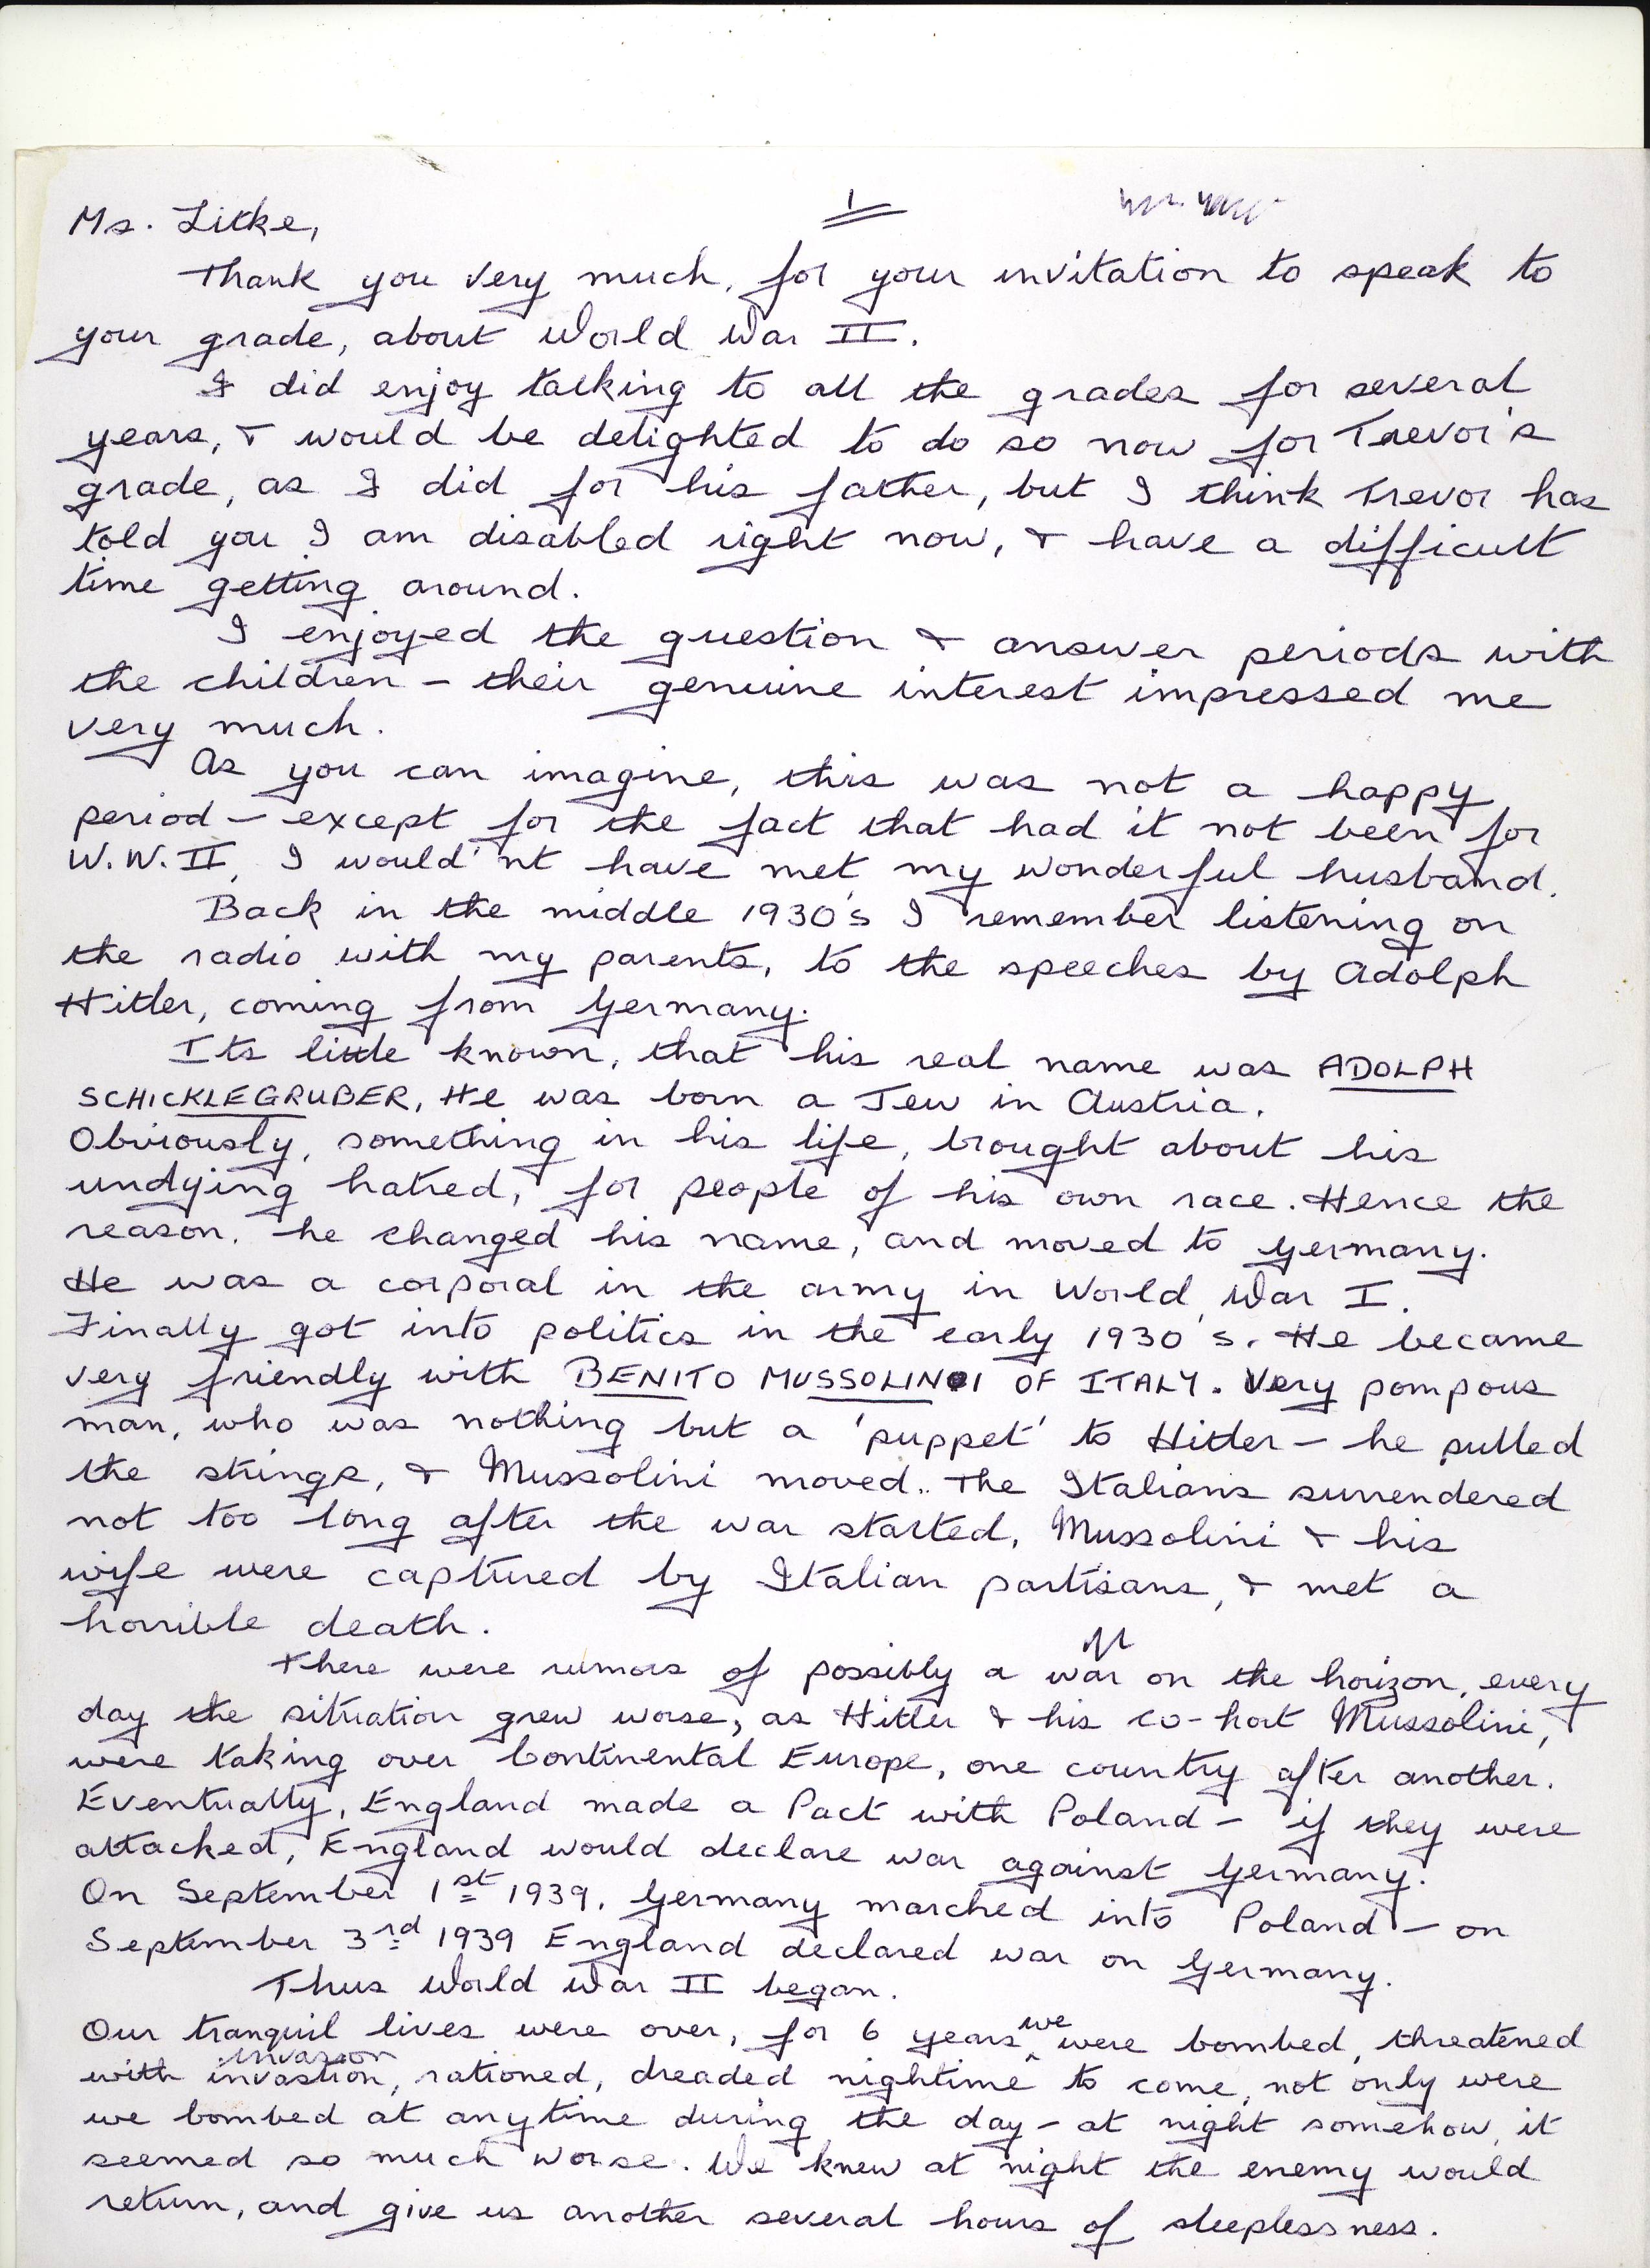 1
Ms. Litke,
Thank you very much, for your invitation to speak to
your grade, about World War II.
I did enjoy talking to all the grades for several
years, & would be delighted to do so now for Trevor's
grade, as I did for his father, but I think Trevor has
told you I am disabled right now, & have a difficult
time getting around.
I enjoyed the question & answer periods with
the children - their genuine interest impressed me
very much.
As you can imagine, this was not a happy
period - except for the fact that had it not been for
W.W.II, I would'nt have met my wonderful husband.
Back in the middle 1930's I remember listening on
the radio with my parents, to the speeches by Adolph
Hitler, coming from Germany.
Its little known, that his real name was ADOLPH
SCHICKLEGRUBER, He was born a Jew in Austria.
Obviously, something in his life, brought about his
undying hatred, for people of his own race. Hence the
reason, he changed his name, and moved to Germany.
He was a corporal in the army in World War I.
Finally got into politics in the early 1930's. He became
very friendly with BENITO MUSSOLINI OF ITALY. Very pompous
man, who was nothing but a 'puppet' to Hitler - he pulled
the strings, & Mussolini moved.. The Italians surrendered
not too long after the war started, Mussolini & his
wife were captured by Italian partisans, & met a
horrible death.
There were rumors of possibly a war on the horizon, every
day the situation grew worse, as Hitler & his co-hort Mussolini,
were taking over Continental Europe, one country after another.
Eventually, England made a Pact with Poland - if they were
attacked, England would declare war against Germany.
On September 1st 1939, Germany marched into Poland - on
September 3rd 1939 England declared war on Germany.
Thus World War II began.
Our tranquil lives were over, for 6 years we were bombed, threatened
invasion
with invastion, rationed, dreaded nightime to come, not only were
we bombed at anytime during the day - at night somehow, it
seemed so much worse. We knew at night the enemy would
return, and give us another several hours of sleeplessness.